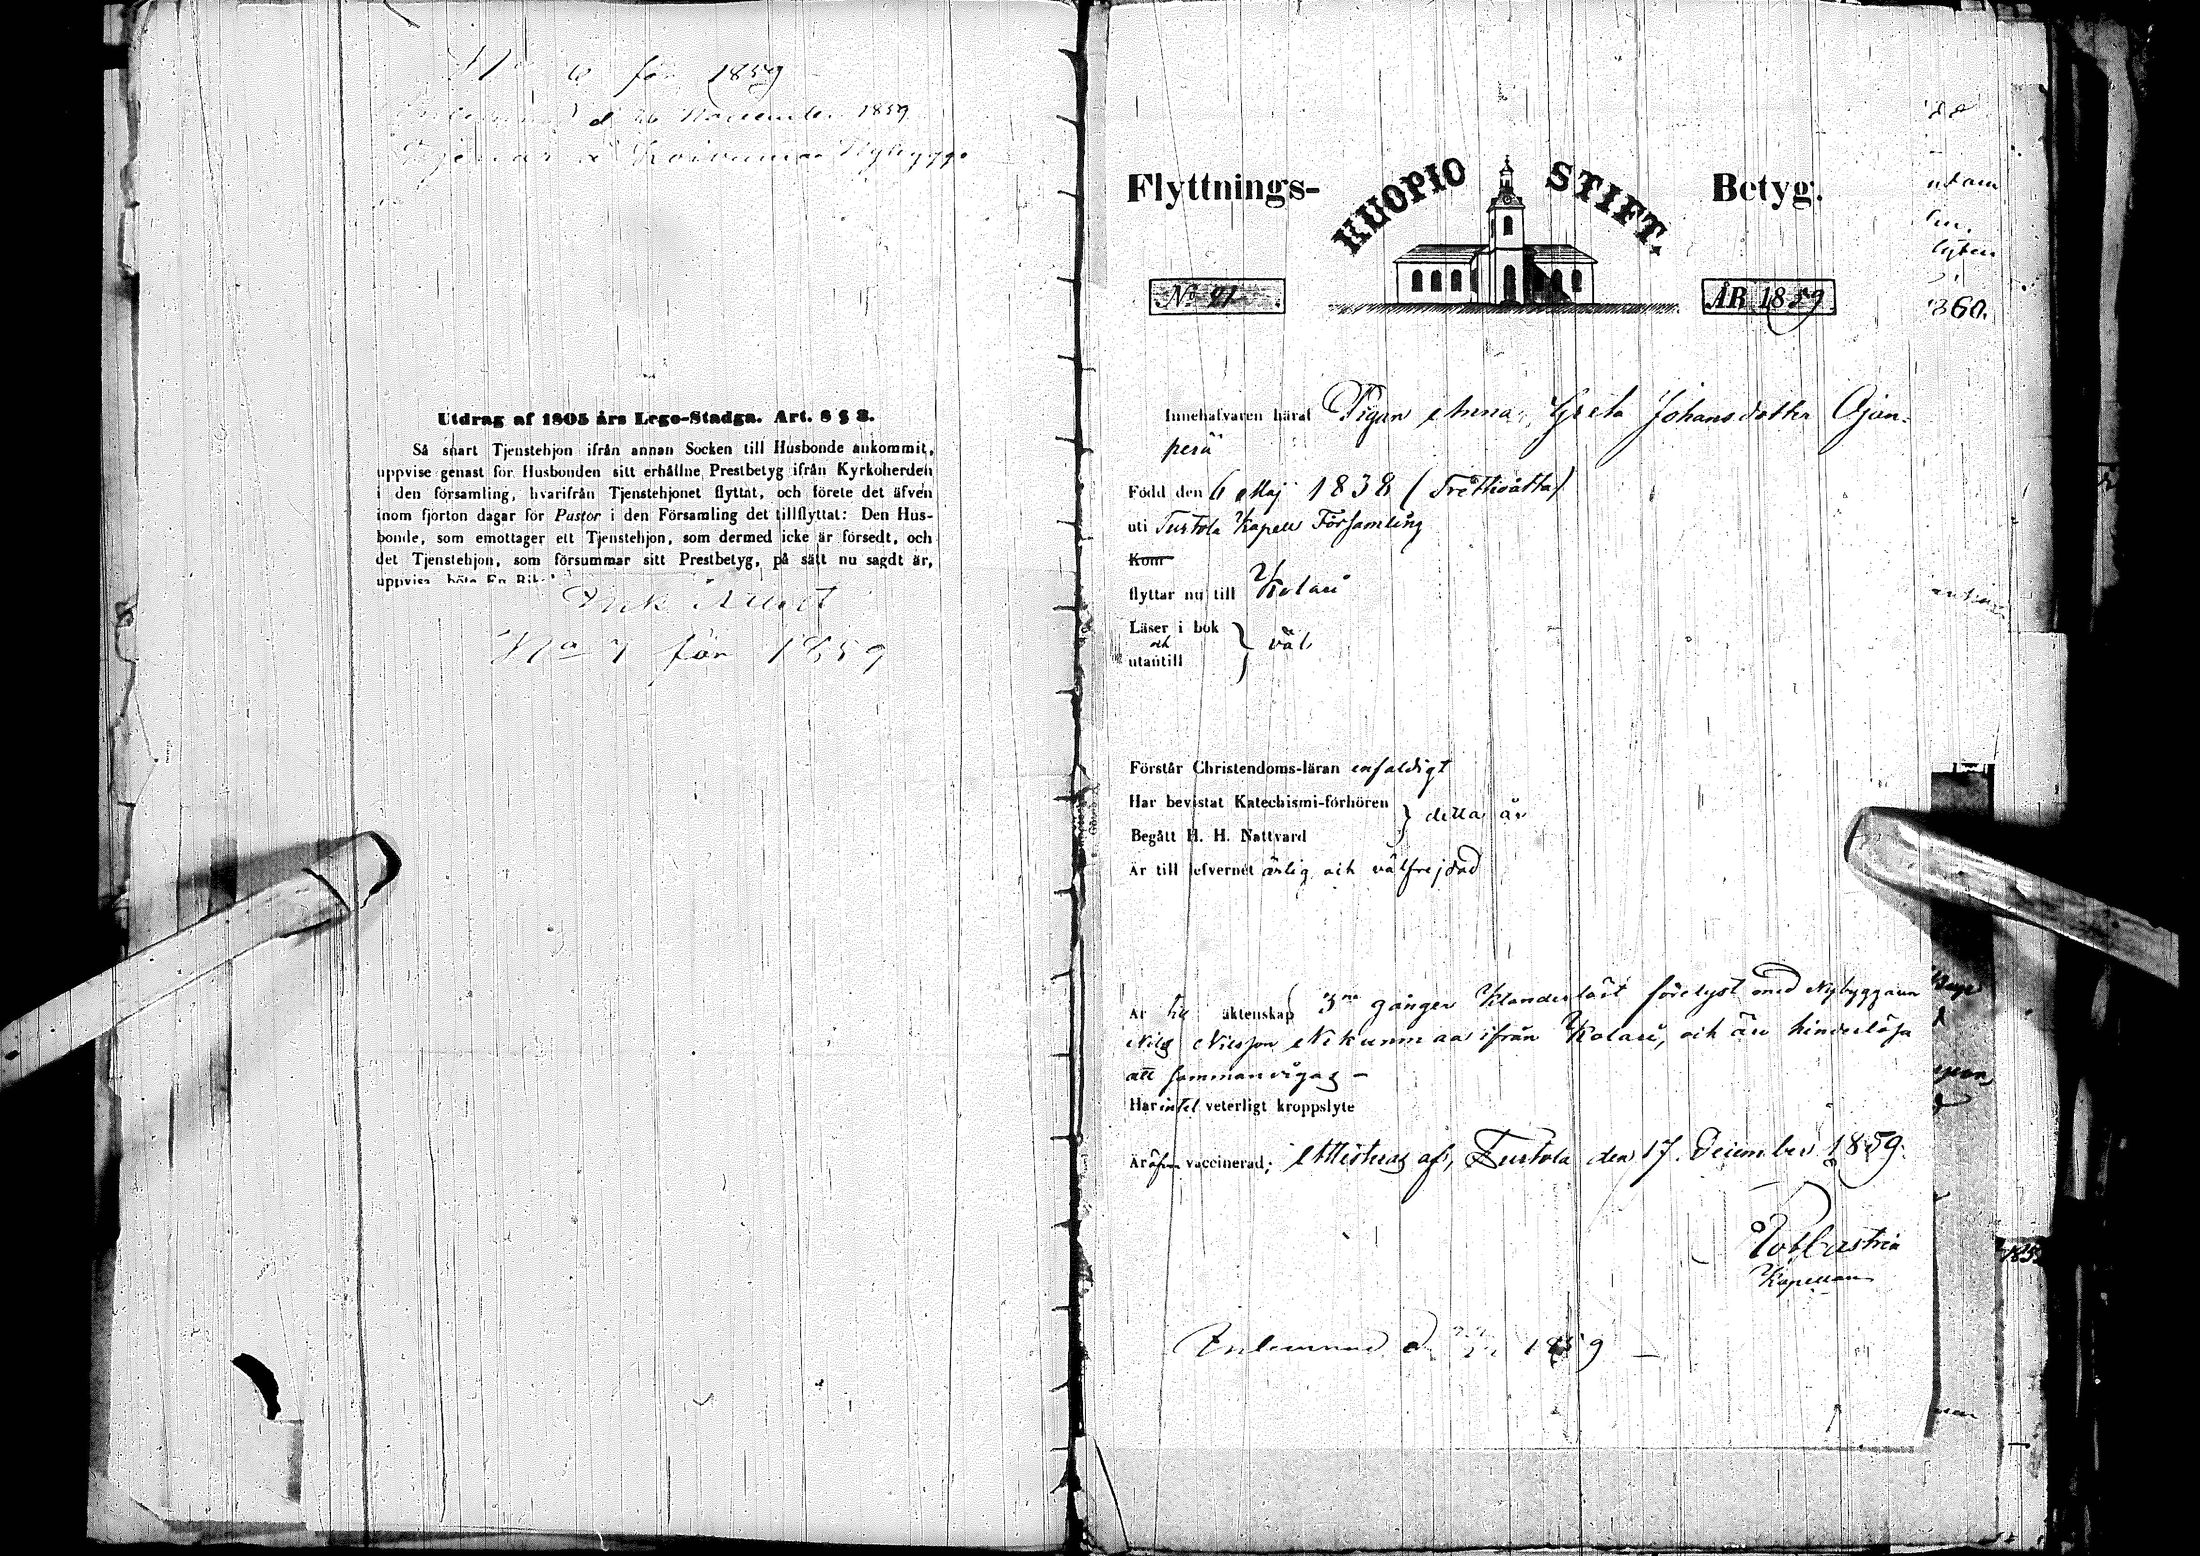 No 6 för 1859
d 26 November 1859
Tjenar å Koivumaa Nybygge
Utdrag af 1805 års Lego-Stadga. Art. 8 § 8.
Så snart Tjenstehjon ifrån annan Socken till Husbonde ankommit,
uppvise genast för Husbonden sitt erhållne Prestbetyg ifrån Kyrkoherden
i den församling, hvarifrån Tjenstehjonet flyttat, och förete det äfven
inom fjorton dagar för Pastor i den Församling det tillflyttat: Den Hus-
bonde, som emottager ett Tjenstehjon, som dermed icke är försedt, och
det Tjenstehjon, som försummar sitt Prestbetyg, på sätt nu sagdt är,
uppvisa, böte En Rik
No 7 för 1859
Flyttnings- KUOPIO STIFT. Betyg.
No 41 ÅR 1859
Innehafvaren häraf Pigan Anna Greta Johansdotter Ajan-
perä
Född den 6 Maj 1838 (Trettioåtta)
uti Turtola Kapell Församling
Kom
flyttar nu till Kolari
Läser i bok
och väl
utantill
Förstår Christendoms-läran enfaldigt
Har bevistat Katechismi-förhören
detta år
Begått H. H. Nattvard
Är till lefvernet ärlig och välfrejdad
Är till äktenskap 3ne gånger klanderlöst förelyst med Nybyggaren
Nils Nilsson ifrån Kolari, och äro hinderlösa
att sammanvigas –
Har intet veterligt kroppslyte
Är äfven vaccinerad; Attesteras af, Turtola den 17 December 1859.
Kapellan
Inlemnad d 1859
utam
360.